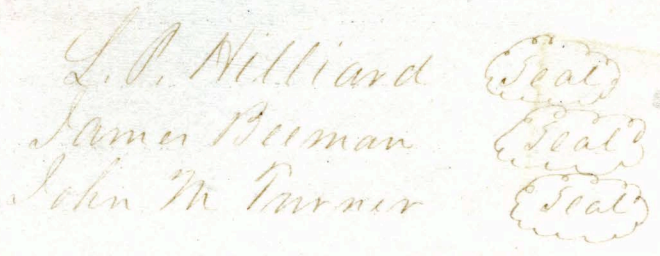 L. P. Hilliard Seal
James Beeman Seal
John M Turner Seal